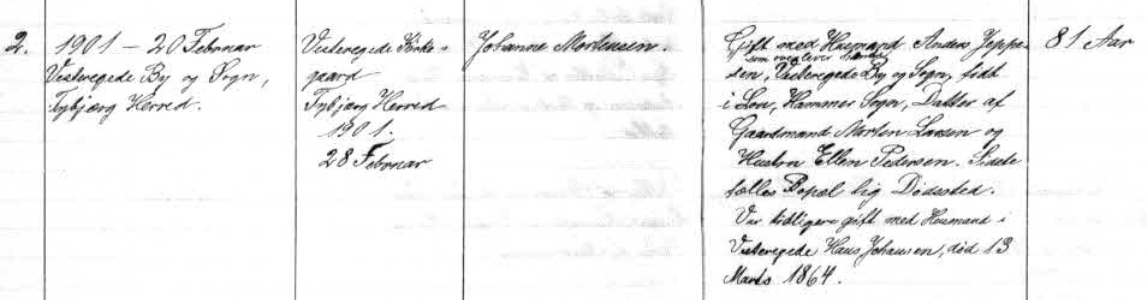 2.
1901 – 20 Februar
Vesteregede By og Sogn,
Tybjærg Herred.
Vesteregede Kirke-
gaard
Tybjærg Herred
1901.
28 Februar
Johanne Mortensen.
Gift med Husmand Anders Jeppe-
som overlever hende
sen, Vesteregede By og Sogn, født
i Lou, Hammer Sogn, Datter af
Gaardmand Morten Larsen og
Hustru Ellen Pedersen. Sidste
fælles Bopæl lig Dødssted.
Var tidligere gift med Husmand i
Vesteregede Hans Johansen, død 13
Marts 1864.
81 Aar